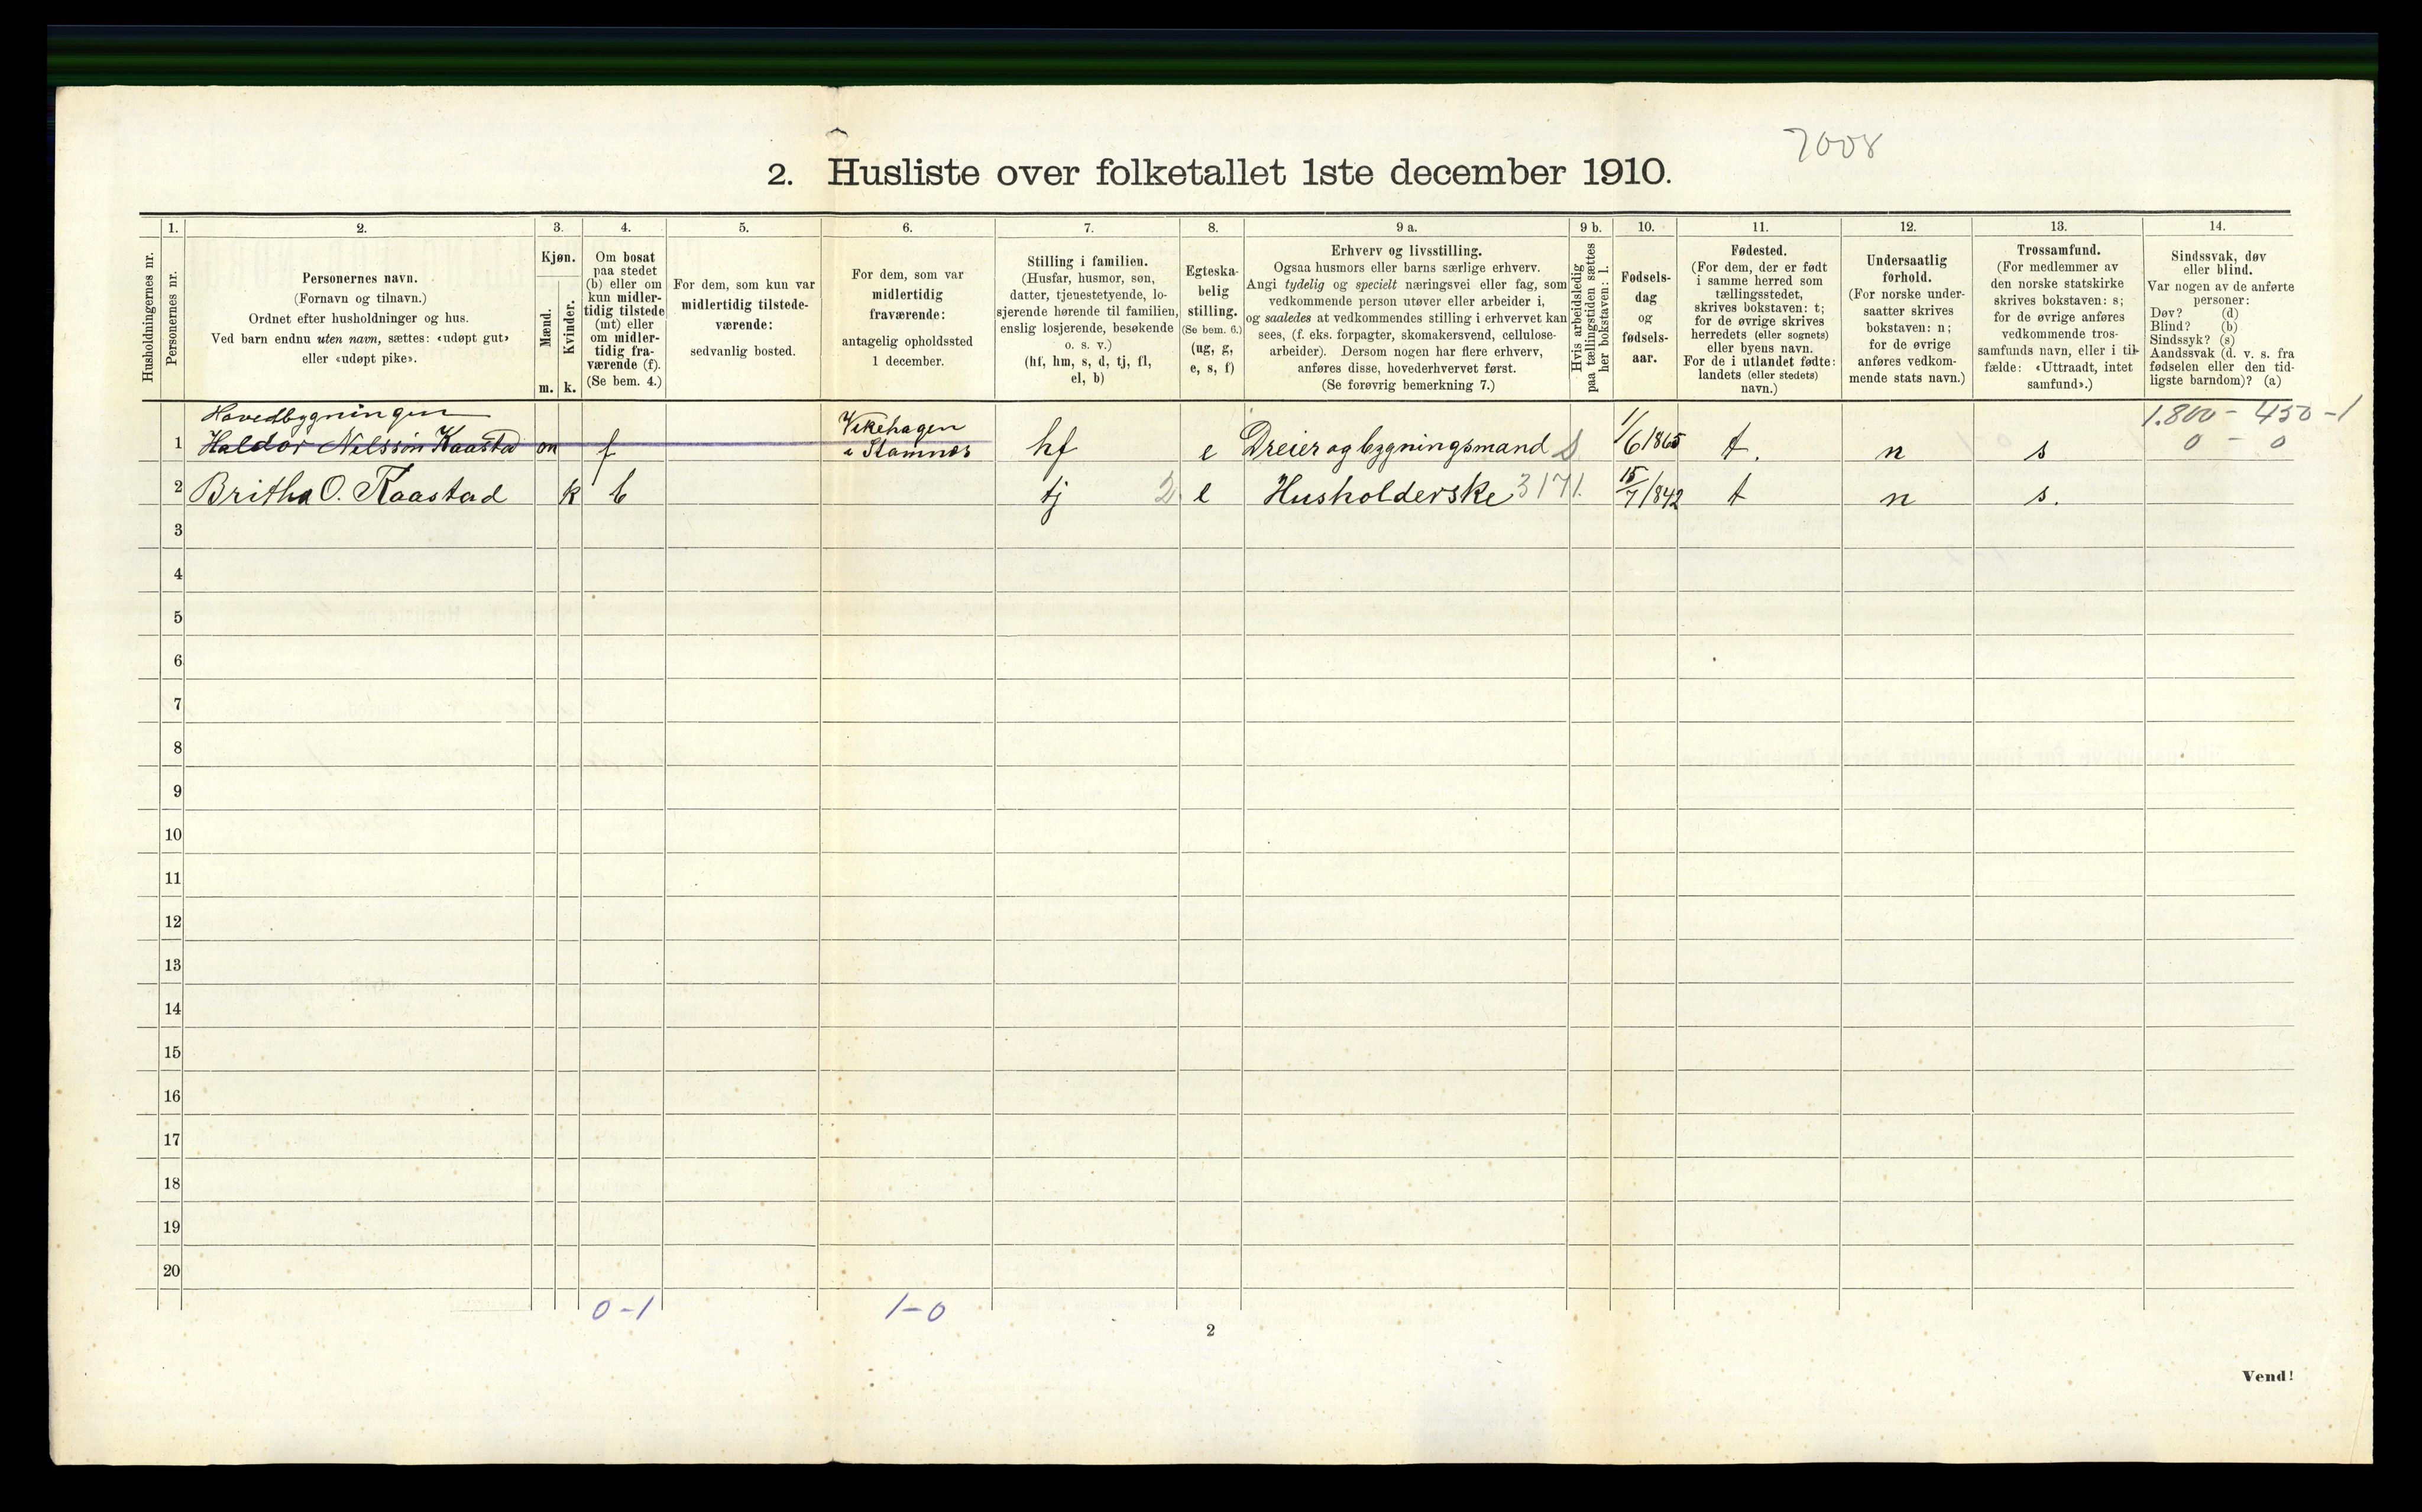 7008
2. Husliste over folketallet 1ste december 1910.
Husholdningernes nr.
1.
Personernes nr.
2.
Personernes navn.
(Fornavn og tilnavn.)
Ordnet efter husholdninger og hus.
Ved barn endnu uten navn, sættes: «udøpt gut»
eller «udøpt pike».
3.
Kjøn.
Mænd.
m.
Kvinder.
k.
4.
Om bosat
paa stedet
(b) eller om
kun midler-
tidig tilstede
(mt) eller
om midler-
tidig fra-
værende (f).
(Se bem. 4.)
5.
For dem, som kun var
midlertidig tilstede-
værende:
sedvanlig bosted.
6.
For dem, som var
midlertidig
fraværende:
antagelig opholdssted
1 december.
7.
Stilling i familien.
(Husfar, husmor, søn,
datter, tjenestetyende, lo-
sjerende hørende til familien,
enslig losjerende, besøkende
o. s. v.)
(hf, hm, s, d, tj, fl,
el, b)
8.
Egteska-
belig
stilling.
(Se bem. 6.)
(ug, g,
e, s, f)
9 a.
Erhverv og livsstilling.
Ogsaa husmors eller barns særlige erhverv.
Angi tydelig og specielt næringsvei eller fag, som
vedkommende person utøver eller arbeider i,
og saaledes at vedkommendes stilling i erhvervet kan
sees, (f. eks. forpagter, skomakersvend, cellulose-
arbeider). Dersom nogen har flere erhverv,
anføres disse, hovederhvervet først.
(Se forøvrig bemerkning 7.)
9 b.
Hvis arbeidsledig
paa tællingstiden sættes
her bokstaven: l.
10.
Fødsels-
dag
og
fødsels-
aar.
11.
Fødested.
(For dem, der er født
i samme herred som
tællingsstedet,
skrives bokstaven: t;
for de øvrige skrives
herredets (eller sognets)
eller byens navn.
For de i utlandet fødte:
landets (eller stedets)
navn.)
12.
Undersaatlig
forhold.
(For norske under-
saatter skrives
bokstaven: n;
for de øvrige
anføres vedkom-
mende stats navn.)
13.
Trossamfund.
(For medlemmer av
den norske statskirke
skrives bokstaven: s;
for de øvrige anføres
vedkommende tros-
samfunds navn, eller i til-
fælde: «Uttraadt, intet
samfund».)
14.
Sindssvak, døv
eller blind.
Var nogen av de anførte
personer:
Døv? (d)
Blind? (b)
Sindssyk? (s)
Aandssvak (d. v. s. fra
fødselen eller den tid-
ligste barndom)? (a)
Hovedbygningen
1.800 - 450 - 1
1 Haldor Nilssøn Kaastad m f Vikehagen i Stamnes hf e Dreier og bygningsmand S 1/6 1865 t. n s 0 - 0
2 Britha O. Kaastad k b tj 2 e Husholderske 3171. 15/7 1842 t n s.
3
4
5
6
7
8
9
10
11
12
13
14
15
16
17
18
19
20
0-1 1-0
2
Vend!